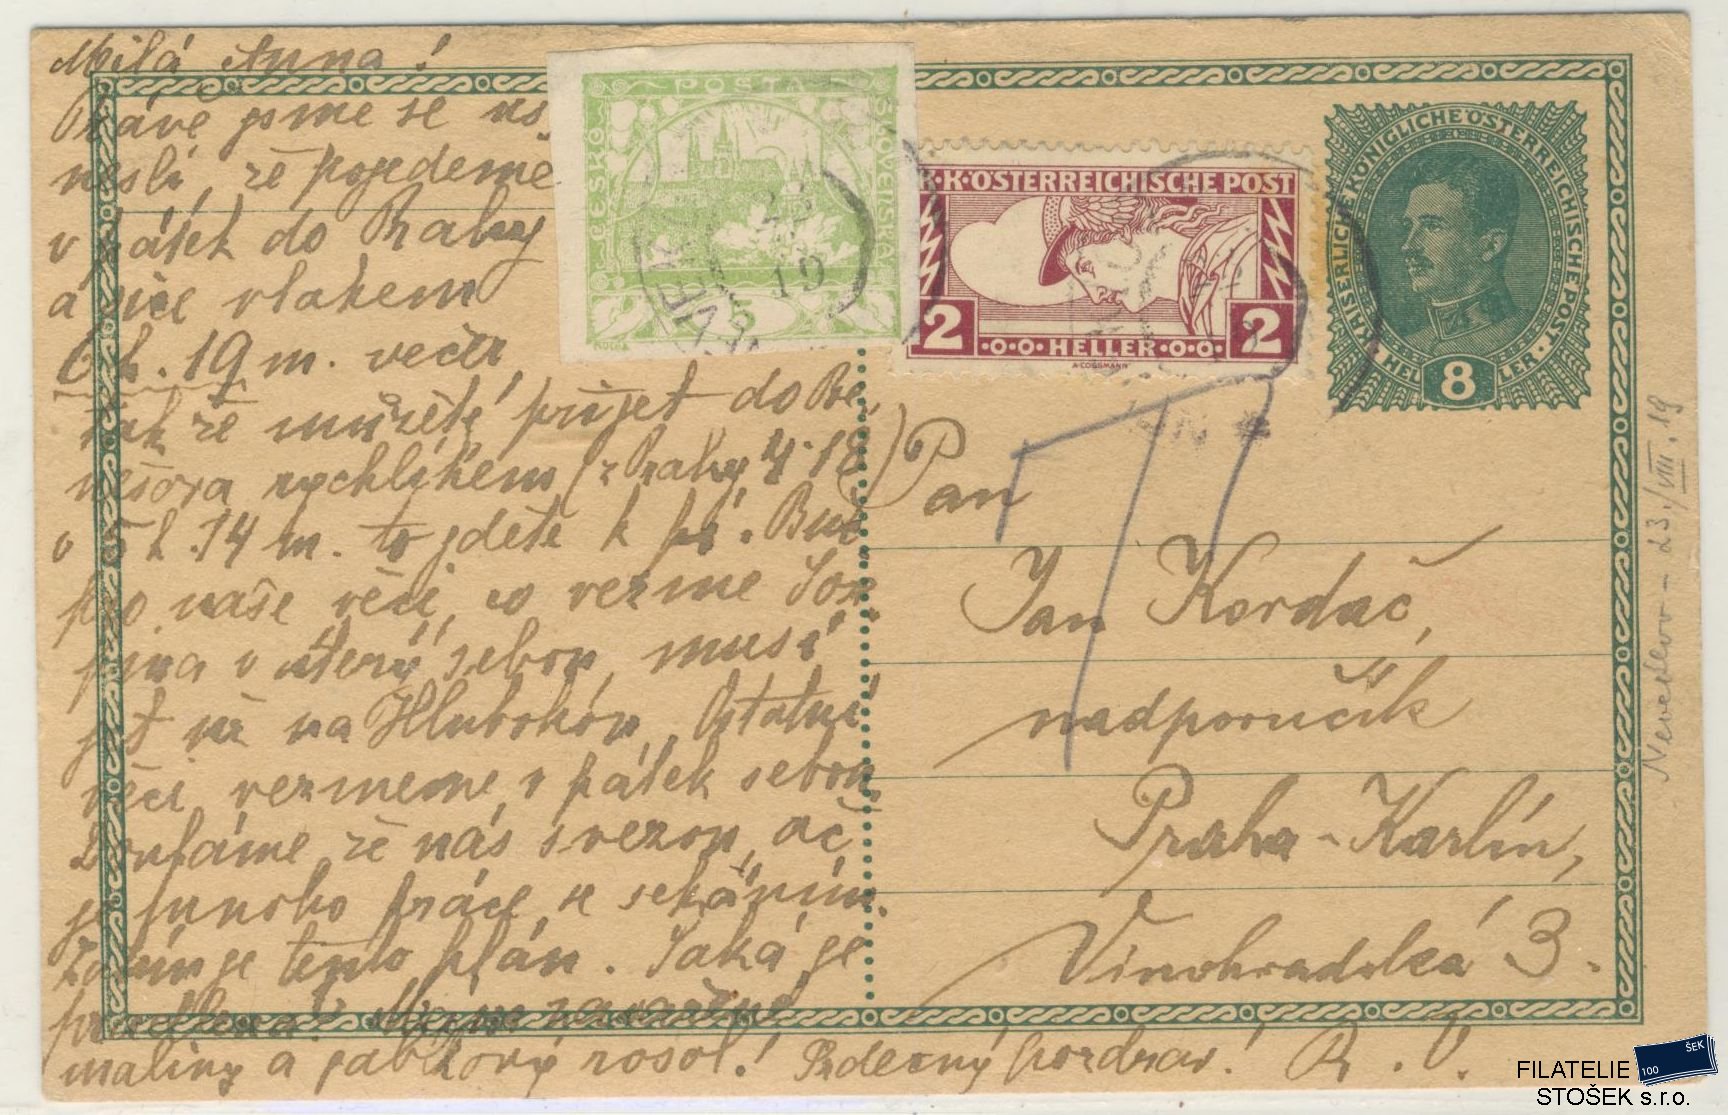 Milá Anno!
Právě jsme se us-
nesli, že pojedeme
v pátek do Prahy
a sice vlakem
6 h. 19 m. večer,
tak že můžete přijet do Be-
nešova rychlíkem (z Prahy 4·18)
v 5 h. 14 m. to jdete k
pro naše věci, co vezme
v úterý sebou, musí
jet už na Ostatní
věci vezmeme v pátek sebou.
Doufáme, že nás svezou, ač
je mnoho práce se sekáním.
tento plán. Jaká je
maliny a jablkový rosol! Srdečný pozdrav! R. V.
POŠTA
ČESKO
SLOVENSKÁ
5
19
K·K·ÖSTERREICHISCHE POST
2 HELLER 2
A·COSSMANN
KAISERLICHE KÖNIGLICHE ÖSTERREICHISCHE POST
HELLER
8
T
Pan
Jan Kordač,
nadporučík
Praha-Karlín,
Vinohradská 3.
23./VIII. 19
ŠEK
100
FILATELIE
STOŠEK s.r.o.